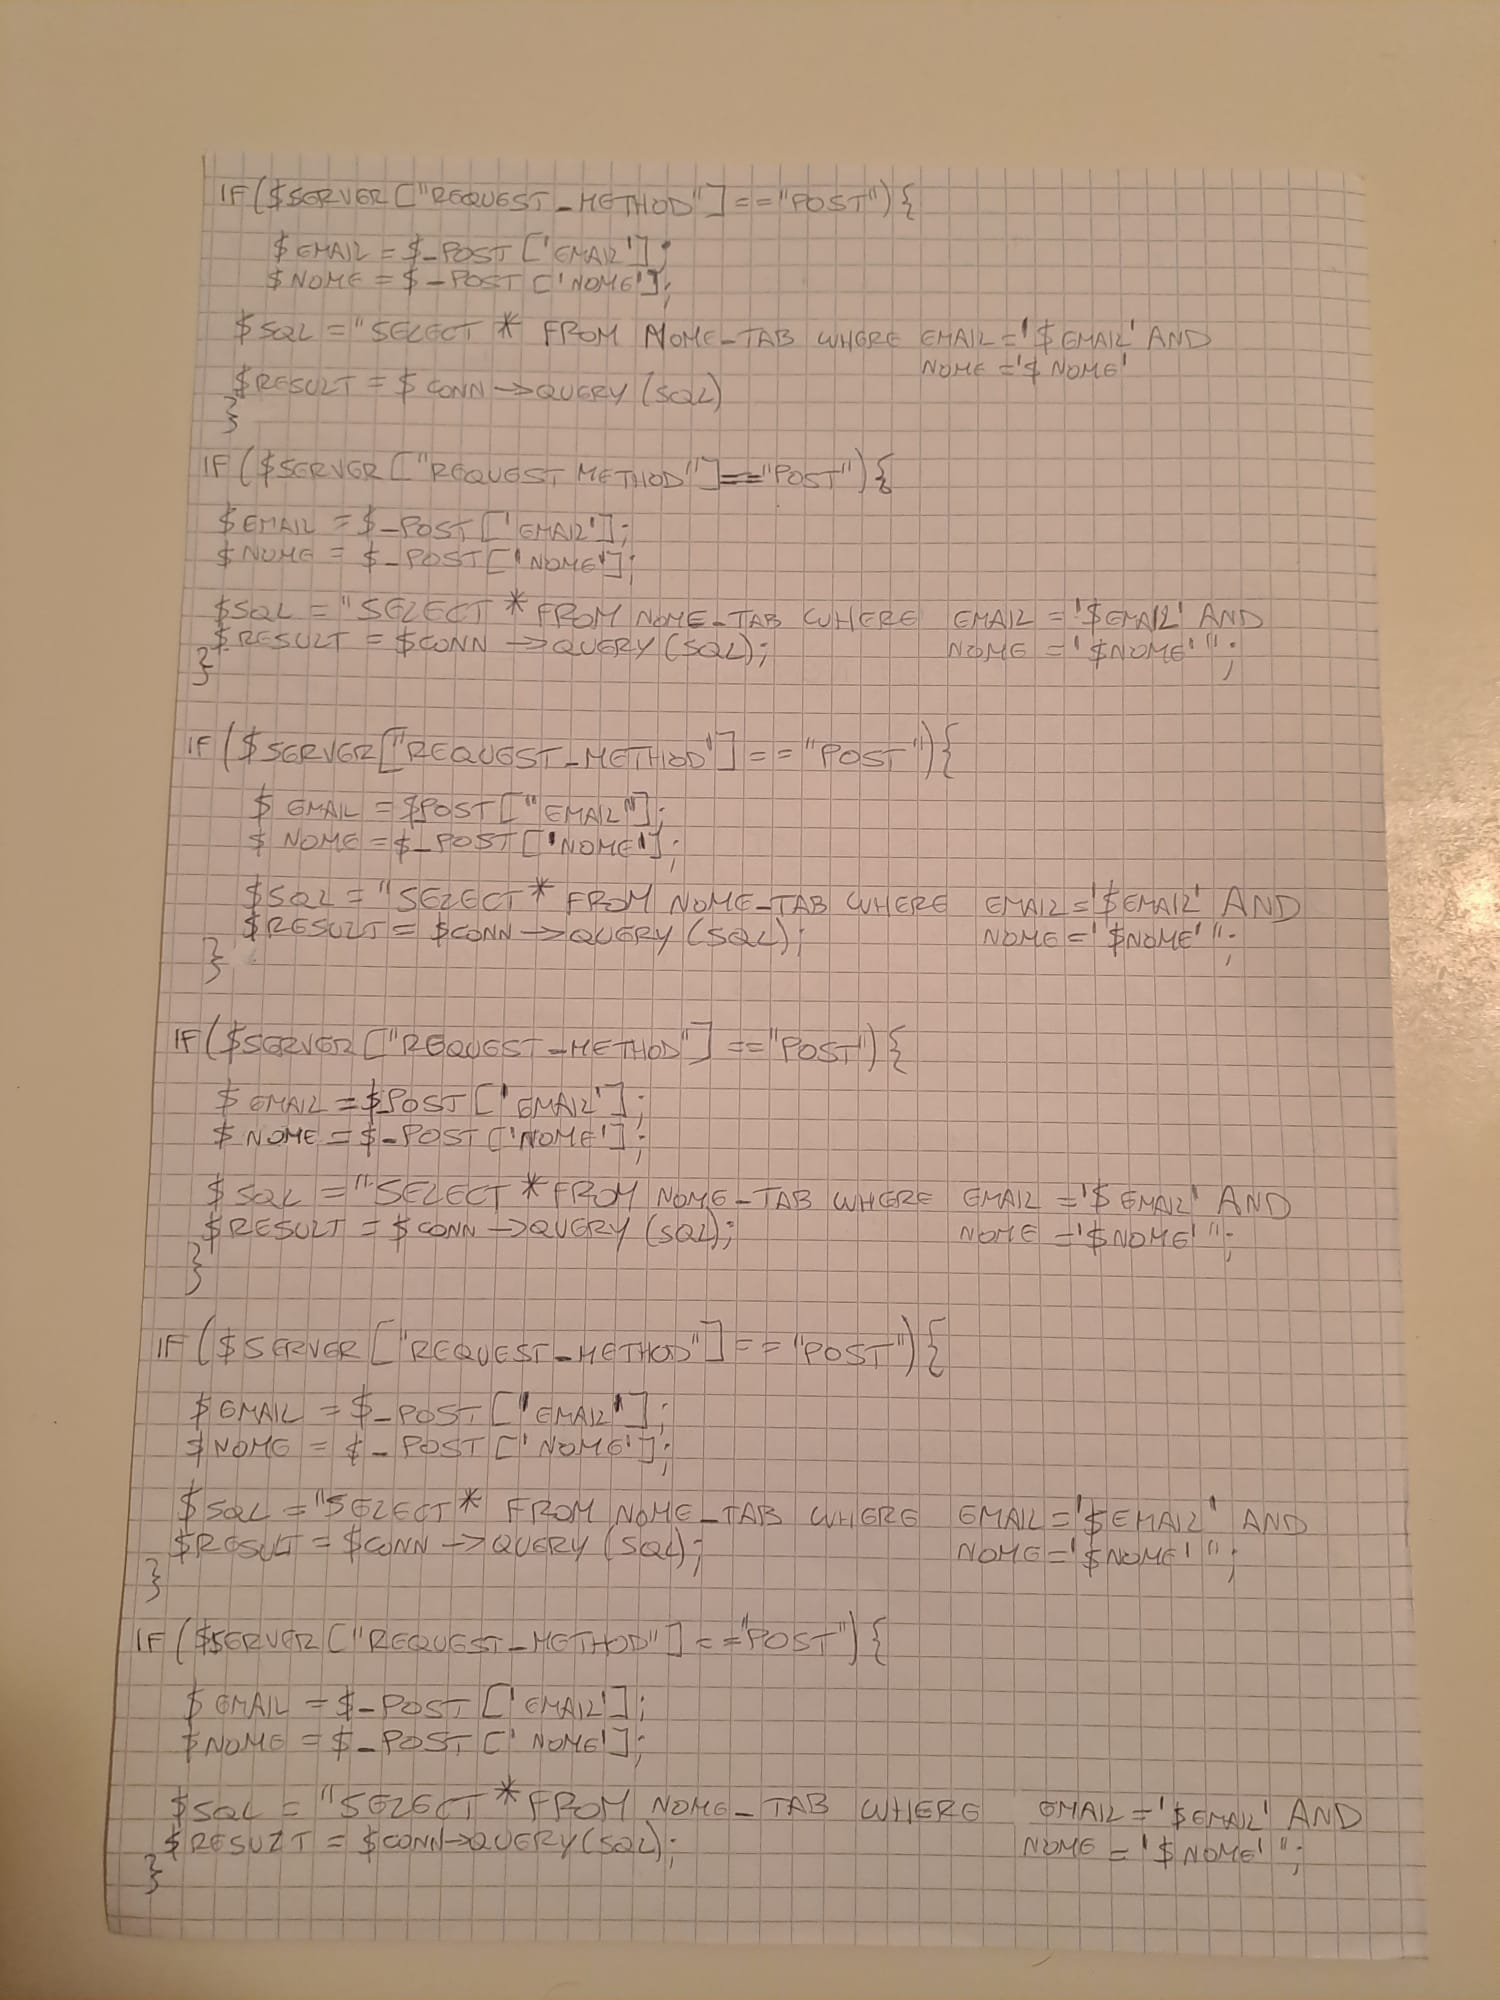 IF($SERVER["REQUEST_METHOD"]=="POST"){
$EMAIL=$_POST['EMAIL'];
$NOME=$_POST['NOME'];
$SQL="SELECT * FROM NOME_TAB WHERE EMAIL='$EMAIL' AND
NOME='$NOME'
$RESULT=$CONN->QUERY(SQL)
}
IF($SERVER["REQUEST METHOD"]=="POST"){
$EMAIL=$_POST['EMAIL'];
$NOME=$_POST['NOME'];
$SQL="SELECT * FROM NOME_TAB WHERE EMAIL='$EMAIL' AND
$RESULT=$CONN->QUERY(SQL); NOME='$NOME'";
}
IF($SERVER["REQUEST_METHOD"]=="POST"){
$EMAIL=$POST["EMAIL"];
$NOME=$_POST['NOME'];
$SQL="SELECT * FROM NOME_TAB WHERE EMAIL='$EMAIL' AND
$RESULT=$CONN->QUERY(SQL); NOME='$NOME'";
}
IF($SERVER["REQUEST_METHOD"]=="POST"){
$EMAIL=$POST['EMAIL'];
$NOME=$_POST['NOME'];
$SQL="SELECT * FROM NOME_TAB WHERE EMAIL='$EMAIL' AND
$RESULT=$CONN->QUERY(SQL); NOME='$NOME'";
}
IF($SERVER["REQUEST_METHOD"]=="POST"){
$EMAIL=$_POST['EMAIL'];
$NOME=$_POST['NOME'];
$SQL="SELECT * FROM NOME_TAB WHERE EMAIL='$EMAIL' AND
$RESULT=$CONN->QUERY(SQL); NOME='$NOME'";
}
IF($SERVER["REQUEST_METHOD"]=="POST"){
$EMAIL=$_POST['EMAIL'];
$NOME=$_POST['NOME'];
$SQL="SELECT * FROM NOME_TAB WHERE EMAIL='$EMAIL' AND
$RESULT=$CONN->QUERY(SQL); NOME='$NOME'";
}